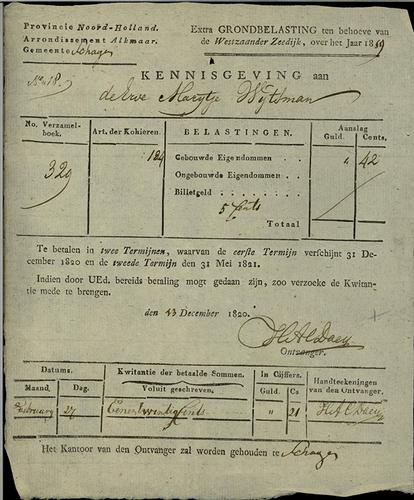 Provincie Noord-Holland.
Arrondissement Alkmaar.
Gemeente Schagen
Extra GRONDBELASTING ten behoeve van
de Westzaander Zeedijk, over het Jaar 18
KENNISGEVING aan
de Wwe Marytje Wijtsman
No. Verzamel-
boek.
Art. der Kohieren.
BELASTINGEN.
Aanslag
Guld. Cents.
329
184
Gebouwde Eigendommen . . " 42
Ongebouwde Eigendommen . .
Billetgeld . . . . . . . .
5 Cents
Totaal
Te betalen in twee Termijnen, waarvan de eerste Termijn verschijnt 31 De-
cember 1820 en de tweede Termijn den 31 Mei 1821.
Indien door UEd. bereids betaling mogt gedaan zijn, zoo verzoeke de Kwitan-
tie mede te brengen.
den 13 December 1820.
Ontvanger.
Datums.
Maand. Dag.
Kwitantie der betaalde Sommen.
Voluit geschreven.
In Cijffers.
Guld. Cs
Handteekeningen
van den Ontvanger.
February 27 Eenentwintig Cents " 21
Het Kantoor van den Ontvanger zal worden gehouden te Schagen